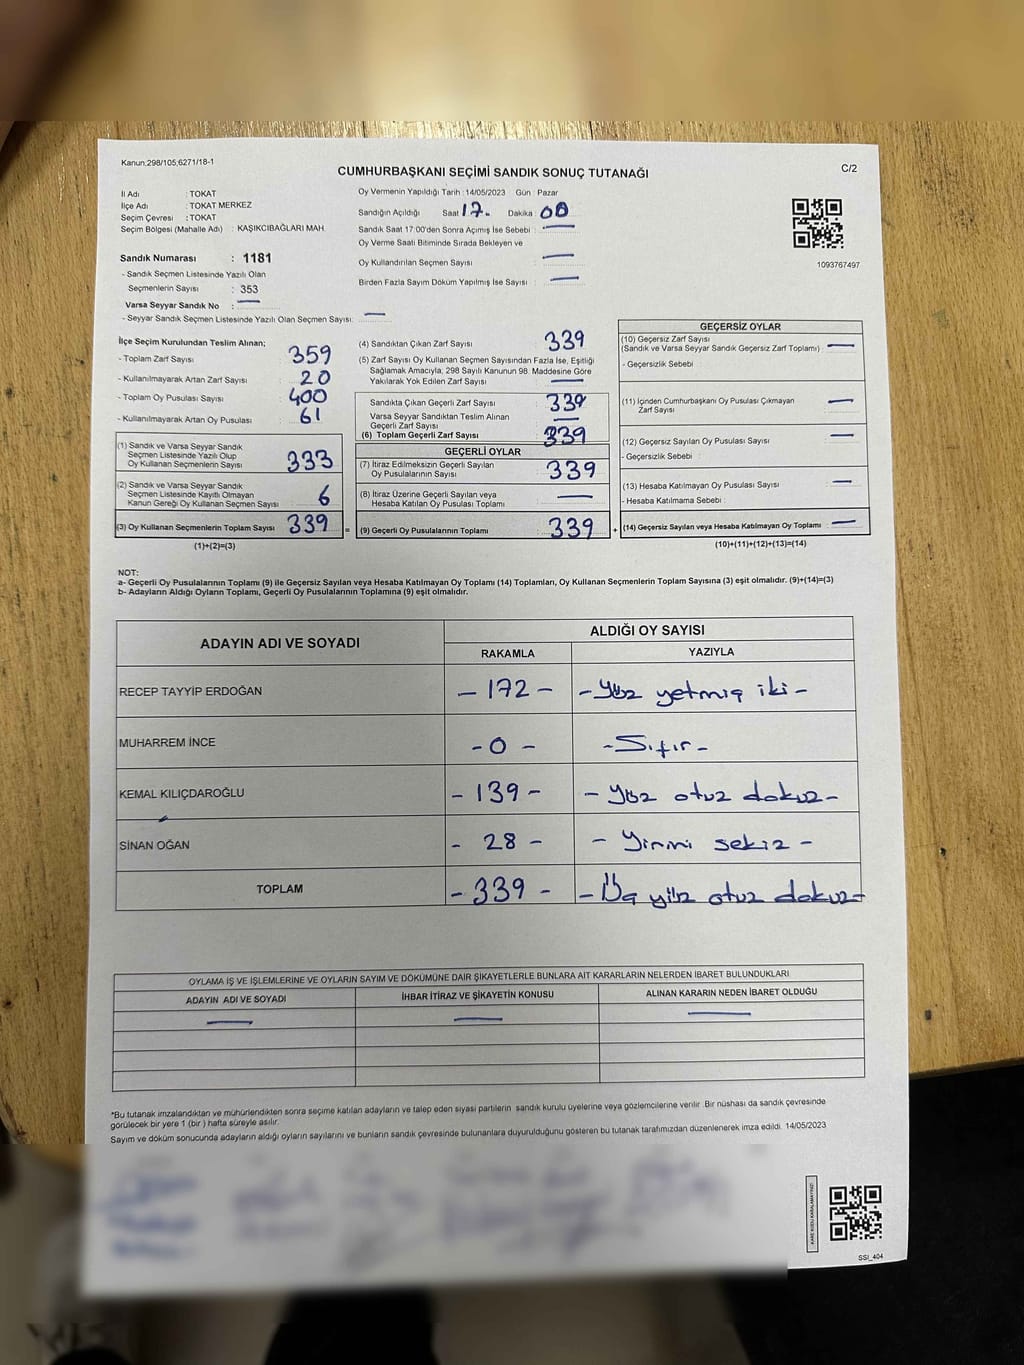 Kanun:298/105,6271/18-1
CUMHURBAŞKANI SEÇİMİ SANDIK SONUÇ TUTANAĞI
C/2
İl Adı : TOKAT
İlçe Adı : TOKAT MERKEZ
Seçim Çevresi : TOKAT
Seçim Bölgesi (Mahalle Adı) : KAŞIKCIBAĞLARI MAH.
Sandık Numarası : 1181
- Sandık Seçmen Listesinde Yazılı Olan
Seçmenlerin Sayısı : 353
Varsa Seyyar Sandık No :
- Seyyar Sandık Seçmen Listesinde Yazılı Olan Seçmen Sayısı:
Oy Vermenin Yapıldığı Tarih : 14/05/2023 Gün : Pazar
Sandığın Açıldığı Saat 17. Dakika : 00
Sandık Saat 17:00'den Sonra Açımış İse Sebebi :
Oy Verme Saati Bitiminde Sırada Bekleyen ve
Oy Kullandırılan Seçmen Sayısı :
Birden Fazla Sayım Döküm Yapılmış İse Sayısı :
1093767497
İlçe Seçim Kurulundan Teslim Alınan;
- Toplam Zarf Sayısı 359
- Kullanılmayarak Artan Zarf Sayısı : 20
- Toplam Oy Pusulası Sayısı : 400
- Kullanılmayarak Artan Oy Pusulası : 61
(1) Sandık ve Varsa Seyyar Sandık
Seçmen Listesinde Yazılı Olup
Oy Kullanan Seçmenlerin Sayısı 333
(2) Sandık ve Varsa Seyyar Sandık
Seçmen Listesinde Kayıtlı Olmayan
Kanun Gereği Oy Kullanan Seçmen Sayısı 6
(3) Oy Kullanan Seçmenlerin Toplam Sayısı 339 =
(1)+(2)=(3)
(4) Sandıktan Çıkan Zarf Sayısı : 339
(5) Zarf Sayısı Oy Kullanan Seçmen Sayısından Fazla İse, Eşitliği
Sağlamak Amacıyla; 298 Sayılı Kanunun 98. Maddesine Göre
Yakılarak Yok Edilen Zarf Sayısı :
Sandıkta Çıkan Geçerli Zarf Sayısı : 339
Varsa Seyyar Sandıktan Teslim Alınan
Geçerli Zarf Sayısı :
(6) Toplam Geçerli Zarf Sayısı : 339
GEÇERLİ OYLAR
(7) İtiraz Edilmeksizin Geçerli Sayılan
Oy Pusulalarının Sayısı : 339
(8) İtiraz Üzerine Geçerli Sayılan veya
Hesaba Katılan Oy Pusulası Toplamı :
(9) Geçerli Oy Pusulalarının Toplamı : 339 +
GEÇERSİZ OYLAR
(10) Geçersiz Zarf Sayısı
(Sandık ve Varsa Seyyar Sandık Geçersiz Zarf Toplamı) :
- Geçersizlik Sebebi :
(11) İçinden Cumhurbaşkanı Oy Pusulası Çıkmayan
Zarf Sayısı :
(12) Geçersiz Sayılan Oy Pusulası Sayısı :
- Geçersizlik Sebebi :
(13) Hesaba Katılmayan Oy Pusulası Sayısı :
- Hesaba Katılmama Sebebi :
(14) Geçersiz Sayılan veya Hesaba Katılmayan Oy Toplamı :
(10)+(11)+(12)+(13)=(14)
NOT:
a- Geçerli Oy Pusulalarının Toplamı (9) ile Geçersiz Sayılan veya Hesaba Katılmayan Oy Toplamı (14) Toplamları, Oy Kullanan Seçmenlerin Toplam Sayısına (3) eşit olmalıdır. (9)+(14)=(3)
b- Adayların Aldığı Oyların Toplamı, Geçerli Oy Pusulalarının Toplamına (9) eşit olmalıdır.
ADAYIN ADI VE SOYADI ALDIĞI OY SAYISI
RAKAMLA YAZIYLA
RECEP TAYYİP ERDOĞAN - 172 - - Yüz yetmiş iki -
MUHARREM İNCE - 0 - - Sıfır -
KEMAL KILIÇDAROĞLU - 139 - - Yüz otuz dokuz -
SİNAN OĞAN - 28 - - Yirmi sekiz -
TOPLAM - 339 - - Üç yüz otuz dokuz -
OYLAMA İŞ VE İŞLEMLERİNE VE OYLARIN SAYIM VE DÖKÜMÜNE DAİR ŞİKAYETLERLE BUNLARA AİT KARARLARIN NELERDEN İBARET BULUNDUKLARI
ADAYIN ADI VE SOYADI İHBAR İTİRAZ VE ŞİKAYETİN KONUSU ALINAN KARARIN NEDEN İBARET OLDUĞU
*Bu tutanak imzalandıktan ve mühürlendikten sonra seçime katılan adayların ve talep eden siyasi partilerin sandık kurulu üyelerine veya gözlemcilerine verilir. Bir nüshası da sandık çevresinde
görülecek bir yere 1 (bir ) hafta süreyle asılır.
Sayım ve döküm sonucunda adayların aldığı oyların sayılarını ve bunların sandık çevresinde bulunanlara duyurulduğunu gösteren bu tutanak tarafımızdan düzenlenerek imza edildi. 14/05/2023
SSI_404